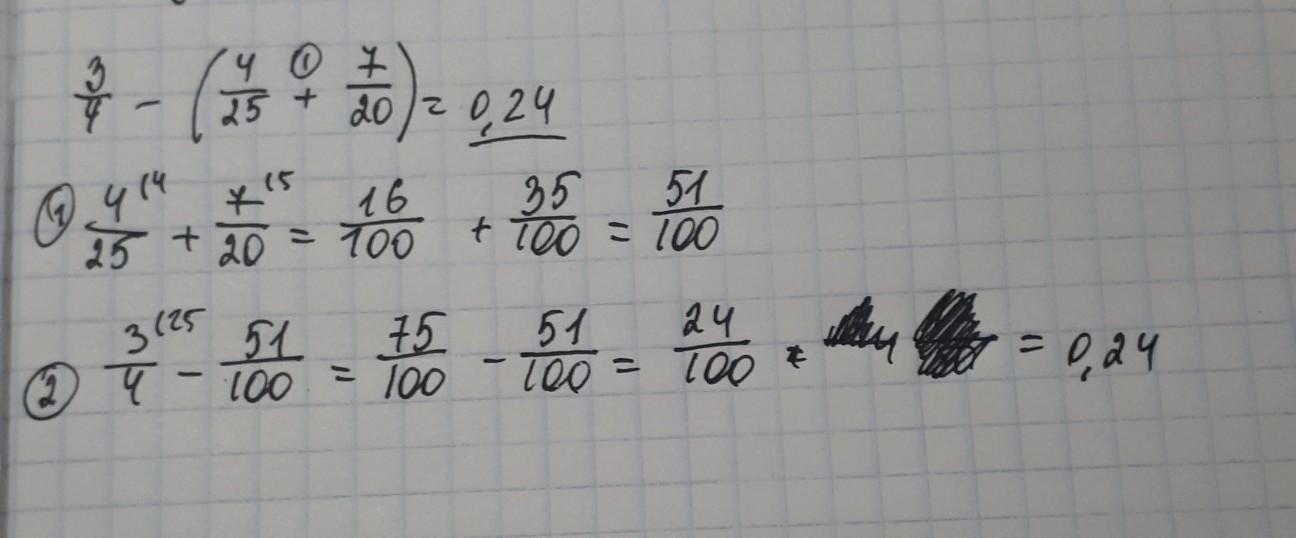 3/4 - (4/25 ① + 7/20) = 0,24
① 4/25 (4 + 7/20 (5 = 16/100 + 35/100 = 51/100
② 3/4 (25 - 51/100 = 75/100 - 51/100 = 24/100 = 0,24